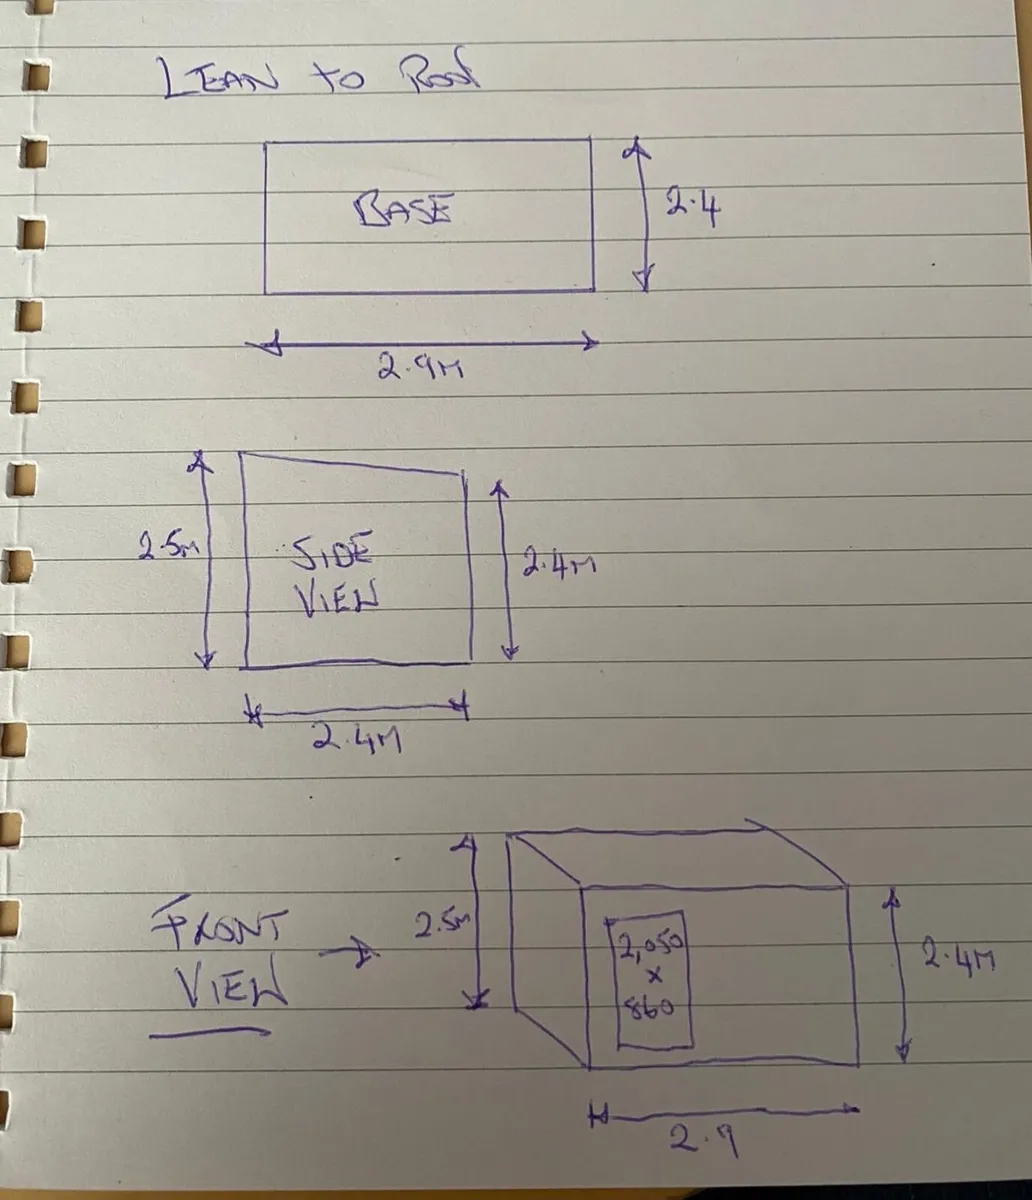 LEAN TO ROOF
BASE
2.4
2.9M
2.5M
SIDE
VIEW
2.4M
2.4M
FRONT
VIEW
2.5M
2,050
x
860
2.4M
2.9